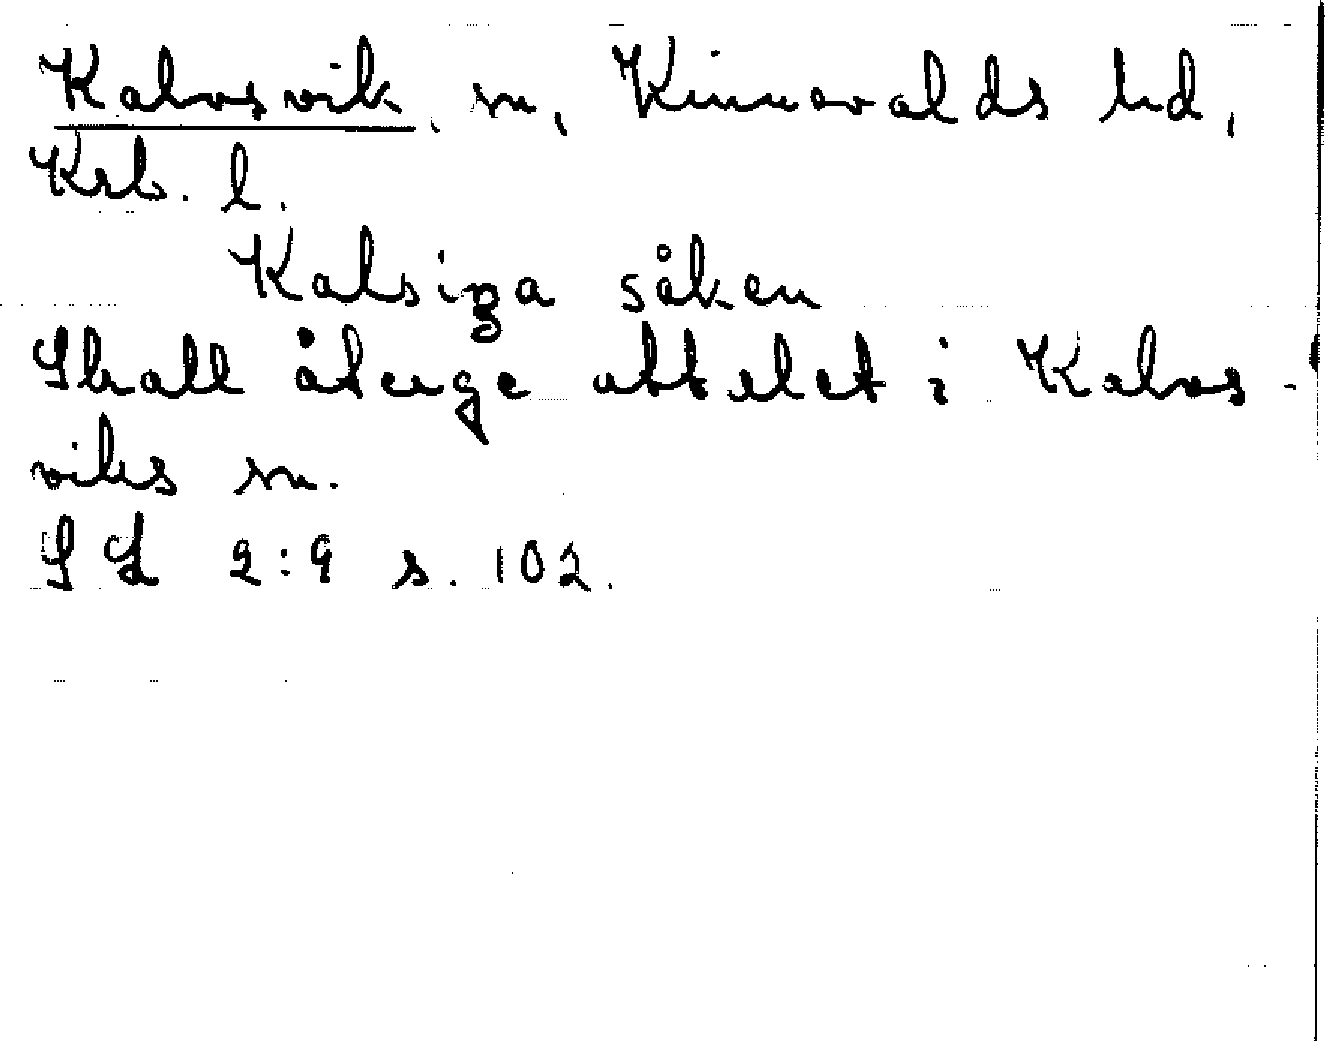 Kalvsvik, sn, Kinnevalds hd,
Krb. l.
Kalsiga såken
Skall återge uttalet i Kalvs-
viks sn.
SL 2:9 s. 102.